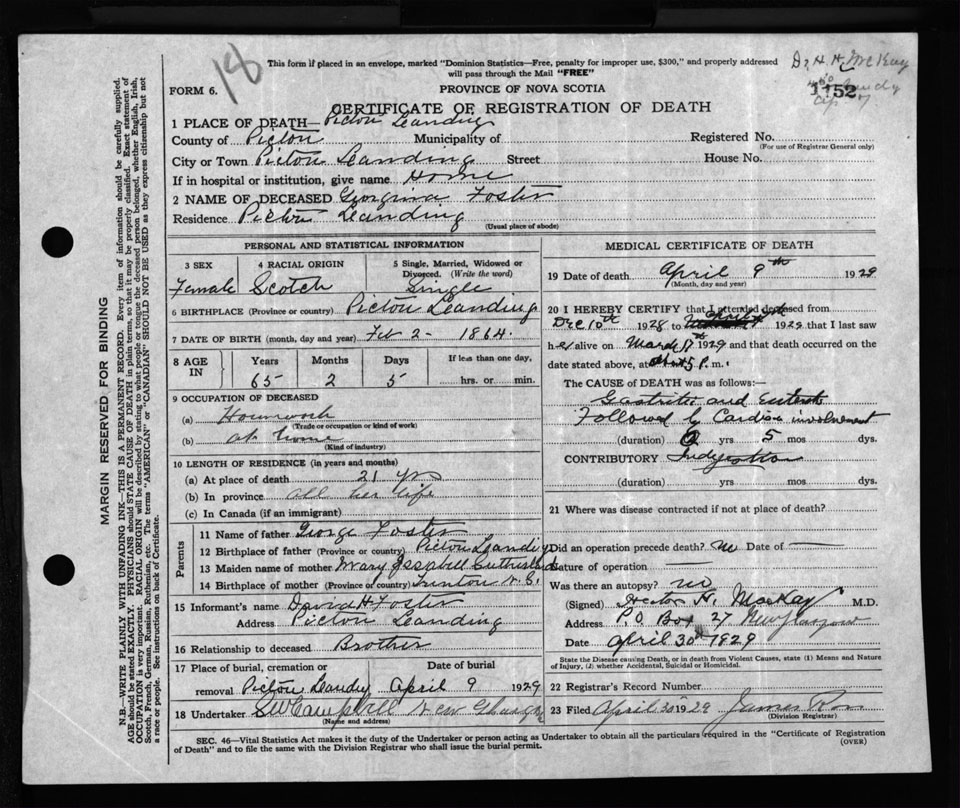 18
This form if placed in an envelope, marked "Dominion Statistics—Free, penalty for improper use, $300," and properly addressed
will pass through the Mail "FREE"
Dr H. H. McKay
FORM 6.
PROVINCE OF NOVA SCOTIA
1152
CERTIFICATE OF REGISTRATION OF DEATH
1 PLACE OF DEATH— Pictou Leanding
County of Pictou Municipality of Registered No.
(For use of Registrar General only)
City or Town Pictou Leanding Street House No.
If in hospital or institution, give name Home
2 NAME OF DECEASED Georgina Foster
Residence Pictou Leanding
(Usual place of abode)
PERSONAL AND STATISTICAL INFORMATION
3 SEX 4 RACIAL ORIGIN 5 Single, Married, Widowed or
Divorced. (Write the word)
Female Scotch Single
6 BIRTHPLACE (Province or country) Pictou Leanding
7 DATE OF BIRTH (month, day and year) Feb 2 - 1864.
8 AGE IN Years Months Days If less than one day,
65 2 5 hrs. or min.
9 OCCUPATION OF DECEASED
(a) Housework
(Trade or occupation or kind of work)
(b) at home
(Kind of industry)
10 LENGTH OF RESIDENCE (in years and months)
(a) At place of death 21 yrs
(b) In province all her life
(c) In Canada (if an immigrant)
Parents
11 Name of father George Foster
12 Birthplace of father (Province or country) Pictou Leanding
13 Maiden name of mother Mary Issabell Sutherland
14 Birthplace of mother (Province or country) N.S.
15 Informant's name David H Foster
Address Pictou Leanding
16 Relationship to deceased Brother
17 Place of burial, cremation or Date of burial
removal Pictou Landg April 9 1929
18 Undertaker SW Campbell New Glasgow
(Name and address)
MEDICAL CERTIFICATE OF DEATH
19 Date of death April 9th 1929
(Month, day and year)
20 I HEREBY CERTIFY that I attended deceased from
Dec 10th 1928 to 1929 that I last saw
her alive on March 17 1929 and that death occurred on the
date stated above, at about 5 P. m.
The CAUSE OF DEATH was as follows:—
Gastritis and
Followed by Cardiac involvement
(duration) 0 yrs 5 mos dys.
CONTRIBUTORY Indigestion
(duration) yrs mos dys.
21 Where was disease contracted if not at place of death?
Did an operation precede death? no Date of —
Nature of operation —
Was there an autopsy? no
(Signed) Hector H. MacKay M.D.
Address P.O. Box 27 New Glasgow
Date April 30th 1929
State the Disease causing Death, or in death from Violent Causes, state (1) Means and Nature
of Injury, (2) whether Accidental, Suicidal or Homicidal.
22 Registrar's Record Number
23 Filed April 30 1929 James
(Division Registrar)
SEC. 46—Vital Statistics Act makes it the duty of the Undertaker or person acting as Undertaker to obtain all the particulars required in the "Certificate of Registration
of Death" and to file the same with the Division Registrar who shall issue the burial permit.
(OVER)
MARGIN RESERVED FOR BINDING
N.B.—WRITE PLAINLY WITH UNFADING INK—THIS IS A PERMANENT RECORD. Every item of information should be carefully supplied.
AGE should be stated EXACTLY. PHYSICIANS should STATE CAUSE OF DEATH in plain terms, so that it may be properly classified. Exact statement of
OCCUPATION is very important. RACIAL ORIGIN will be described by stating to what people or tongue the deceased person belonged, whether English, Irish,
Scotch, French, German, Russian, Ruthenian, etc. The terms "AMERICAN" or "CANADIAN" SHOULD NOT BE USED as they express citizenship but not
a race or people. See instructions on back of Certificate.